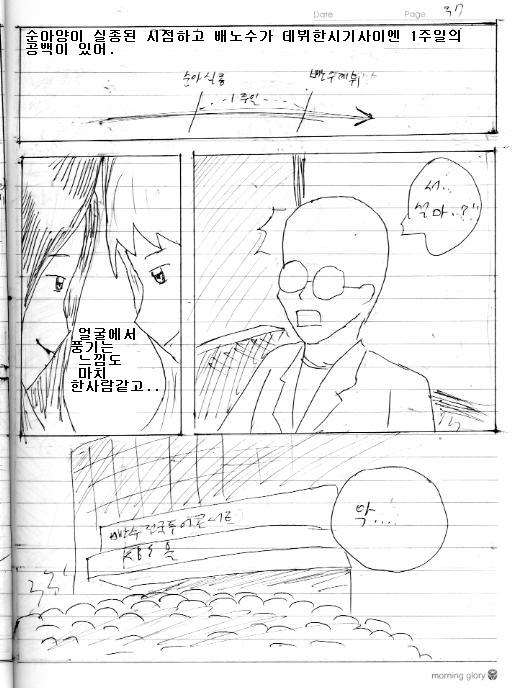 Date
Page 37
순아양이 실종된 시점하고 배노수가 데뷔한시기사이엔 1주일의
공백이 있어.
순아실종
1주일
서..
설마..?!
얼굴에서
풍기는
느낌도
마치
한사람같고..
악....
KBS홀
morning glory